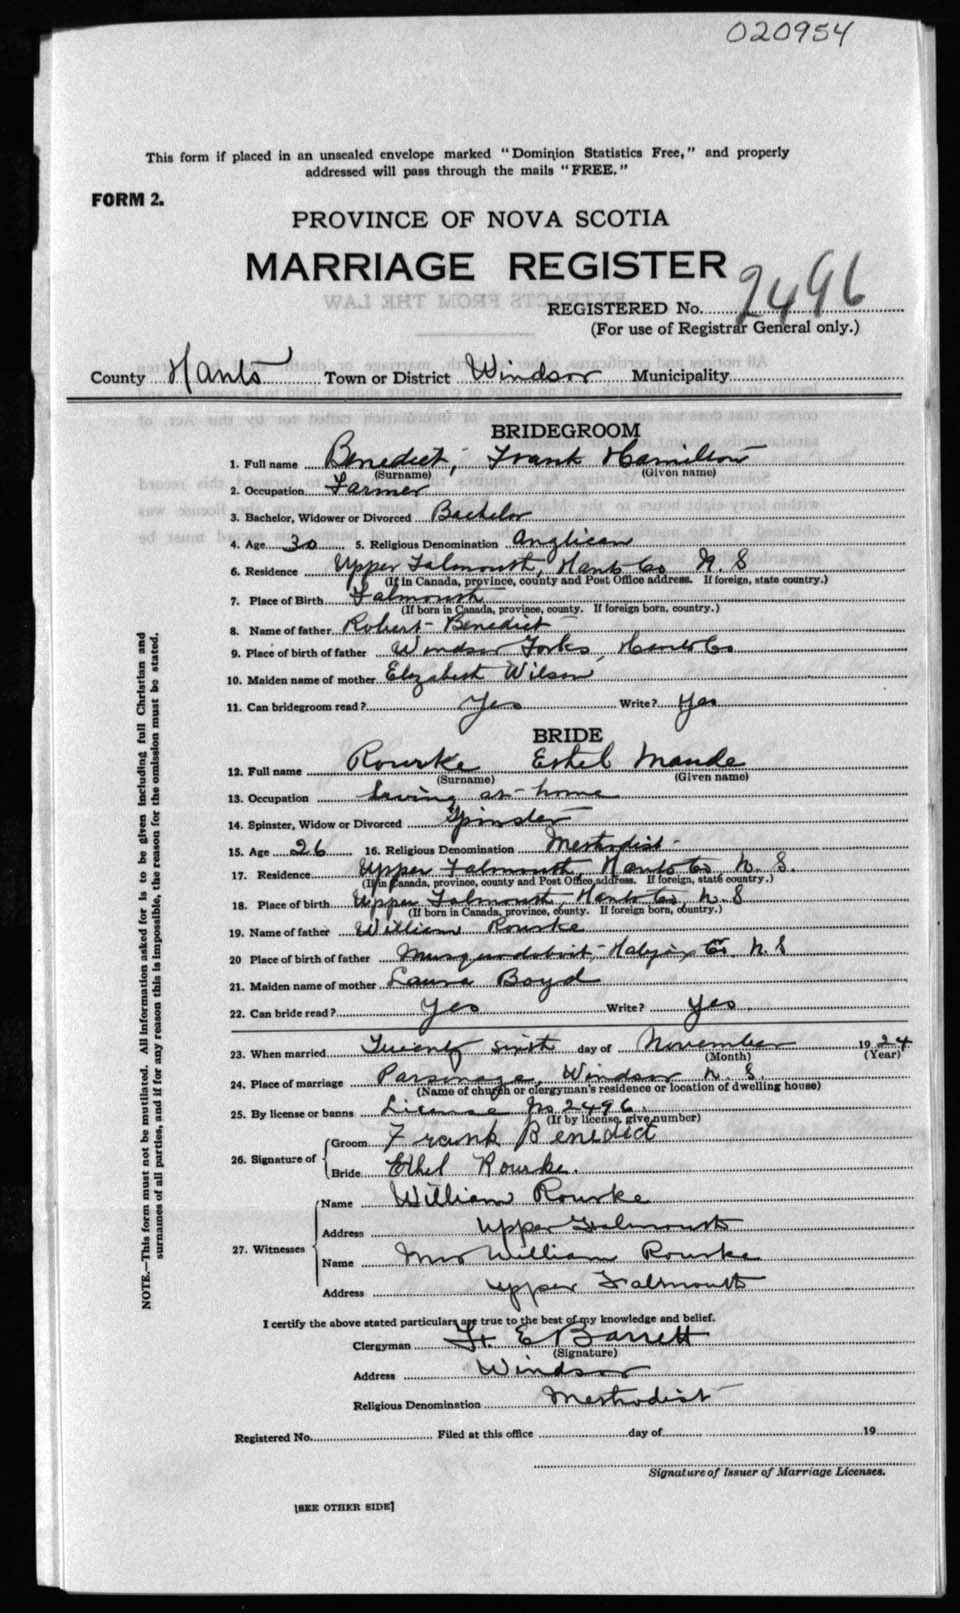 020954
This form if placed in an unsealed envelope marked "Dominion Statistics Free," and properly
addressed will pass through the mails "FREE."
FORM 2.
PROVINCE OF NOVA SCOTIA
MARRIAGE REGISTER
REGISTERED No. 2496
(For use of Registrar General only.)
County Hants Town or District Windsor Municipality
BRIDEGROOM
1. Full name Benedict, Frank Hamilton
(Surname) (Given name)
2. Occupation Farmer
3. Bachelor, Widower or Divorced Bachelor
4. Age 30 5. Religious Denomination Anglican
6. Residence Upper Falmouth, Hants Co N. S
(If in Canada, province, county and Post Office address. If foreign, state country.)
7. Place of Birth Falmouth
(If born in Canada, province, county. If foreign born, country.)
8. Name of father Robert Benedict
9. Place of birth of father Windsor Forks, Hants Co
10. Maiden name of mother Elizabeth Wilson
11. Can bridegroom read? Yes Write? Yes
BRIDE
12. Full name Rourke Ethel Maude
(Surname) (Given name)
13. Occupation Living at home
14. Spinster, Widow or Divorced Spinster
15. Age 26 16. Religious Denomination Methodist
17. Residence Upper Falmouth, Hants Co N. S.
(If in Canada, province, county and Post Office address. If foreign, state country.)
18. Place of birth Upper Falmouth, Hants Co, N. S
(If born in Canada, province, county. If foreign born, country.)
19. Name of father William Rourke
20 Place of birth of father Musquodoboit, Halifax Co, N. S
21. Maiden name of mother Laura Boyd
22. Can bride read? Yes Write? Yes.
23. When married Twenty sixth day of November 1924
(Month) (Year)
24. Place of marriage Parsonage, Windsor N. S.
(Name of church or clergyman's residence or location of dwelling house)
25. By license or banns License No 2496.
(If by license, give number)
26. Signature of Groom Frank Benedict
Bride Ethel Rourke.
27. Witnesses Name William Rourke
Address Upper Falmouth
Name Mrs William Rourke
Address Upper Falmouth
I certify the above stated particulars are true to the best of my knowledge and belief.
Clergyman E Barrett
(Signature)
Address Windsor
Religious Denomination Methodist
Registered No. Filed at this office day of 19
Signature of Issuer of Marriage Licenses.
[SEE OTHER SIDE]
NOTE.—This form must not be mutilated. All information asked for is to be given including full Christian and
surnames of all parties, and if for any reason this is impossible, the reason for the omission must be stated.
EXTRACTS FROM THE LAW